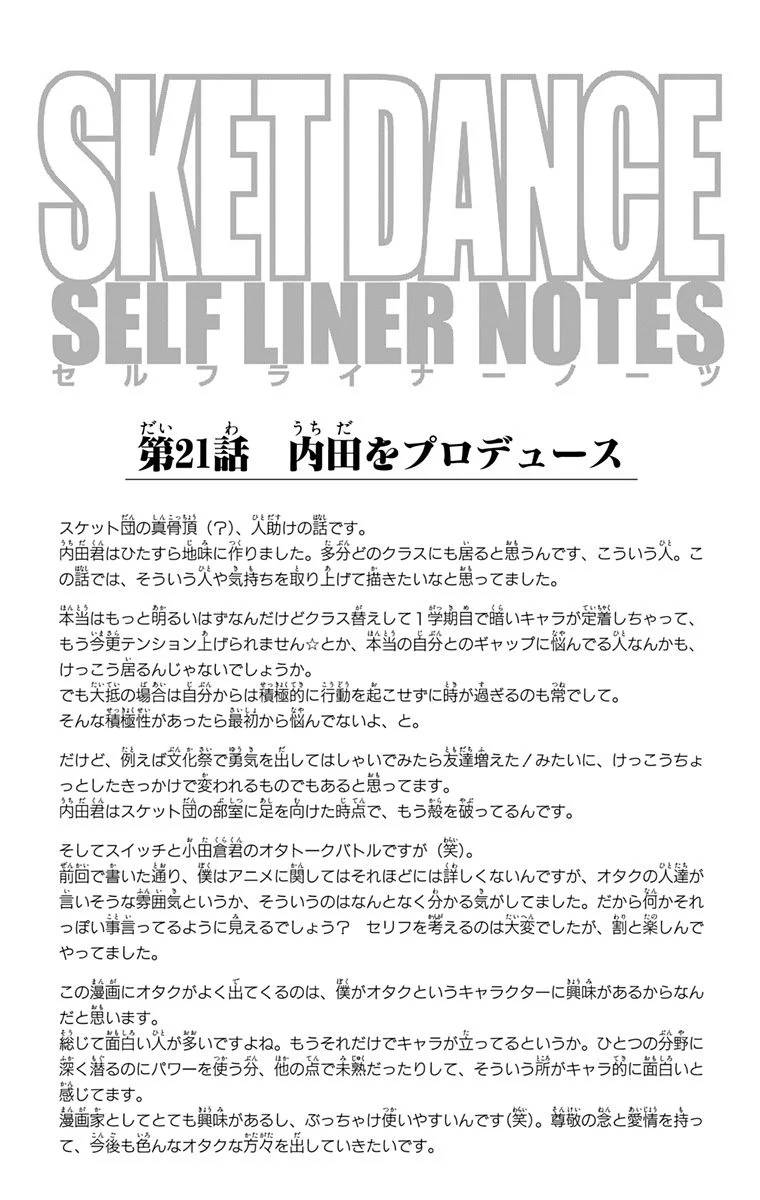 SKET DANCE
SELF LINER NOTES
セルフライナーノーツ
第21話　内田をプロデュース
スケット団の真骨頂（？）、人助けの話です。
内田君はひたすら地味に作りました。多分どのクラスにも居ると思うんです、こういう人。こ
の話では、そういう人や気持ちを取り上げて描きたいなと思ってました。
本当はもっと明るいはずなんだけどクラス替えして１学期目で暗いキャラが定着しちゃって、
もう今更テンション上げられません☆とか、本当の自分とのギャップに悩んでる人なんかも、
けっこう居るんじゃないでしょうか。
でも大抵の場合は自分からは積極的に行動を起こせずに時が過ぎるのも常でして。
そんな積極性があったら最初から悩んでないよ、と。
だけど、例えば文化祭で勇気を出してはしゃいでみたら友達増えた！みたいに、けっこうちょ
っとしたきっかけで変われるものでもあると思ってます。
内田君はスケット団の部室に足を向けた時点で、もう殻を破ってるんです。
そしてスイッチと小田倉君のオタトークバトルですが（笑）。
前回で書いた通り、僕はアニメに関してはそれほどには詳しくないんですが、オタクの人達が
言いそうな雰囲気というか、そういうのはなんとなく分かる気がしてました。だから何かそれ
っぽい事言ってるように見えるでしょう？　セリフを考えるのは大変でしたが、割と楽しんで
やってました。
この漫画にオタクがよく出てくるのは、僕がオタクというキャラクターに興味があるからなん
だと思います。
総じて面白い人が多いですよね。もうそれだけでキャラが立ってるというか。ひとつの分野に
深く潜るのにパワーを使う分、他の点で未熟だったりして、そういう所がキャラ的に面白いと
感じてます。
漫画家としてとても興味があるし、ぶっちゃけ使いやすいんです（笑）。尊敬の念と愛情を持っ
て、今後も色んなオタクな方々を出していきたいです。